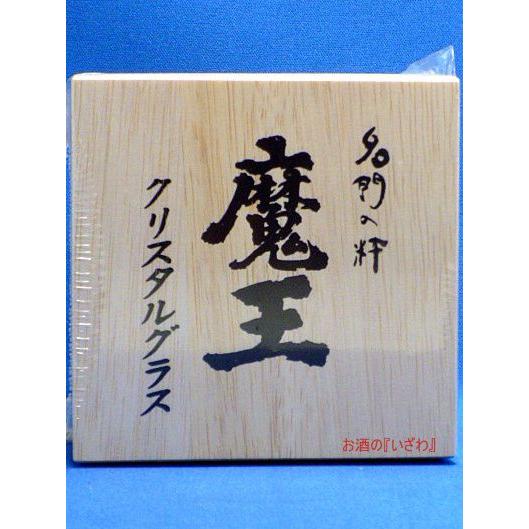 名門の粋
魔王
クリスタルグラス
お酒の『いざわ』